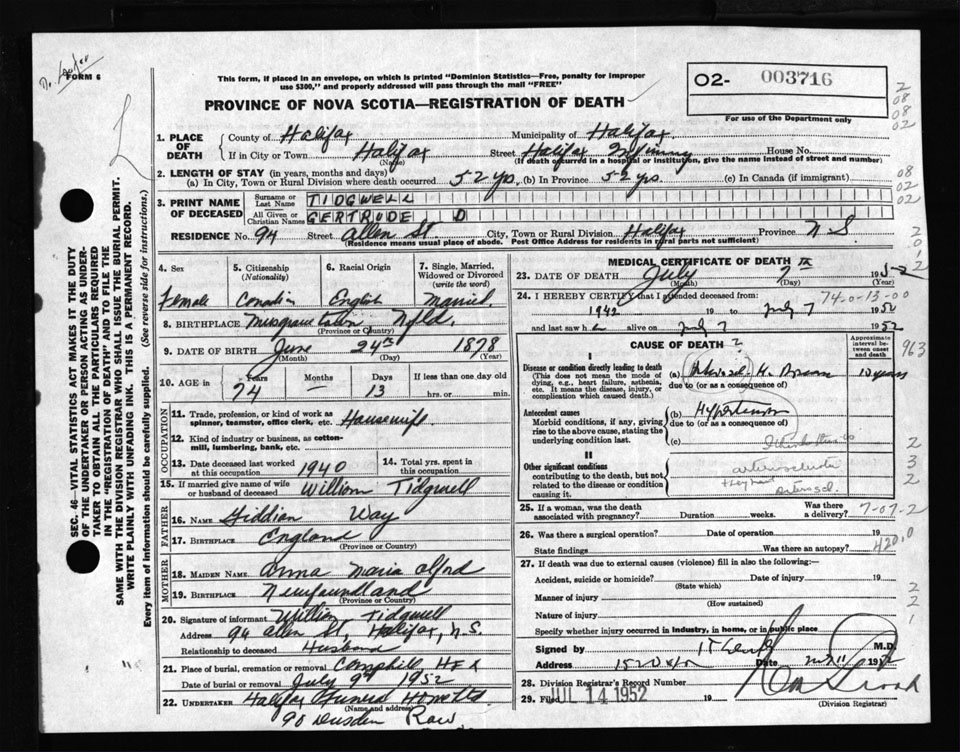 FORM 6
This form, if placed in an envelope, on which is printed "Dominion Statistics—Free, penalty for improper
use $300," and properly addressed will pass through the mail "FREE"
PROVINCE OF NOVA SCOTIA—REGISTRATION OF DEATH
02- 003716
For use of the Department only
1. PLACE OF DEATH
County of Halifax Municipality of Halifax
If in City or Town Halifax Street Halifax Infirmary House No.
(Name) (If death occurred in a hospital or institution, give the name instead of street and number)
2. LENGTH OF STAY (in years, months and days)
(a) In City, Town or Rural Division where death occurred 52 yrs. (b) In Province 52 yrs. (c) In Canada (if immigrant)
3. PRINT NAME OF DECEASED
Surname or Last Name TIDGWELL
All Given or Christian Names GERTRUDE D
RESIDENCE No. 94 Street Allen St. City, Town or Rural Division Halifax Province N.S.
(Residence means usual place of abode. Post Office Address for residents in rural parts not sufficient)
4. Sex Female
5. Citizenship (Nationality) Canadian
6. Racial Origin English
7. Single, Married, Widowed or Divorced (write the word) Married
8. BIRTHPLACE Musgravetown Nfld.
(Province or Country)
9. DATE OF BIRTH June 24th 1878
(Month) (Day) (Year)
10. AGE in Years Months Days If less than one day old
74 — 13 hrs. or min.
OCCUPATION
11. Trade, profession, or kind of work as spinner, teamster, office clerk, etc. Housewife
12. Kind of industry or business, as cotton-mill, lumbering, bank, etc.
13. Date deceased last worked at this occupation 1940
14. Total yrs. spent in this occupation
15. If married give name of wife or husband of deceased William Tidgwell
FATHER
16. NAME Giddian Way
17. BIRTHPLACE England
(Province or Country)
MOTHER
18. MAIDEN NAME Anna Maria Alford
19. BIRTHPLACE Newfoundland
(Province or Country)
20. Signature of informant William Tidgwell
Address 94 Allen St, Halifax, N.S.
Relationship to deceased Husband
21. Place of burial, cremation or removal Camphill, HFX
Date of burial or removal July 9th 1952
22. UNDERTAKER Halifax Funeral Home Ltd
(Name and address)
90 Dresden Row
MEDICAL CERTIFICATE OF DEATH
23. DATE OF DEATH July 7th 1952
(Month) (Day) (Year)
24. I HEREBY CERTIFY that I attended deceased from:
74-0-13-00
1942 to July 7 1952
and last saw h alive on July 7 1952
CAUSE OF DEATH
Approximate interval between onset and death
963
I
Disease or condition directly leading to death
(This does not mean the mode of dying, e.g., heart failure, asthenia, etc. It means the disease, injury, or complication which caused death.)
(a) 10 years
due to (or as a consequence of)
Antecedent causes
Morbid conditions, if any, giving rise to the above cause, stating the underlying condition last.
(b) Hypertension
due to (or as a consequence of)
(c)
II
Other significant conditions
contributing to the death, but not related to the disease or condition causing it.
25. If a woman, was the death associated with pregnancy? Duration weeks. Was there a delivery?
7-07-2
26. Was there a surgical operation? Date of operation 19
State findings Was there an autopsy?
420.0
27. If death was due to external causes (violence) fill in also the following:—
Accident, suicide or homicide? Date of injury 19
(State which)
Manner of injury
(How sustained)
Nature of injury
Specify whether injury occurred in industry, in home, or in public place
Signed by M.D.
Address Date 11 1952
28. Division Registrar's Record Number
29. Filed JUL 14 1952 19
(Division Registrar)
SEC. 46—VITAL STATISTICS MAKES IT THE DUTY
OF THE UNDERTAKER OR PERSON ACTING AS UNDER-
TAKER TO OBTAIN ALL THE PARTICULARS REQUIRED
IN THE "REGISTRATION OF DEATH" AND TO FILE THE
SAME WITH THE DIVISION REGISTRAR WHO SHALL ISSUE THE BURIAL PERMIT.
WRITE PLAINLY WITH UNFADING INK. THIS IS A PERMANENT RECORD.
Every item of information should be carefully supplied. (See reverse side for instructions.)